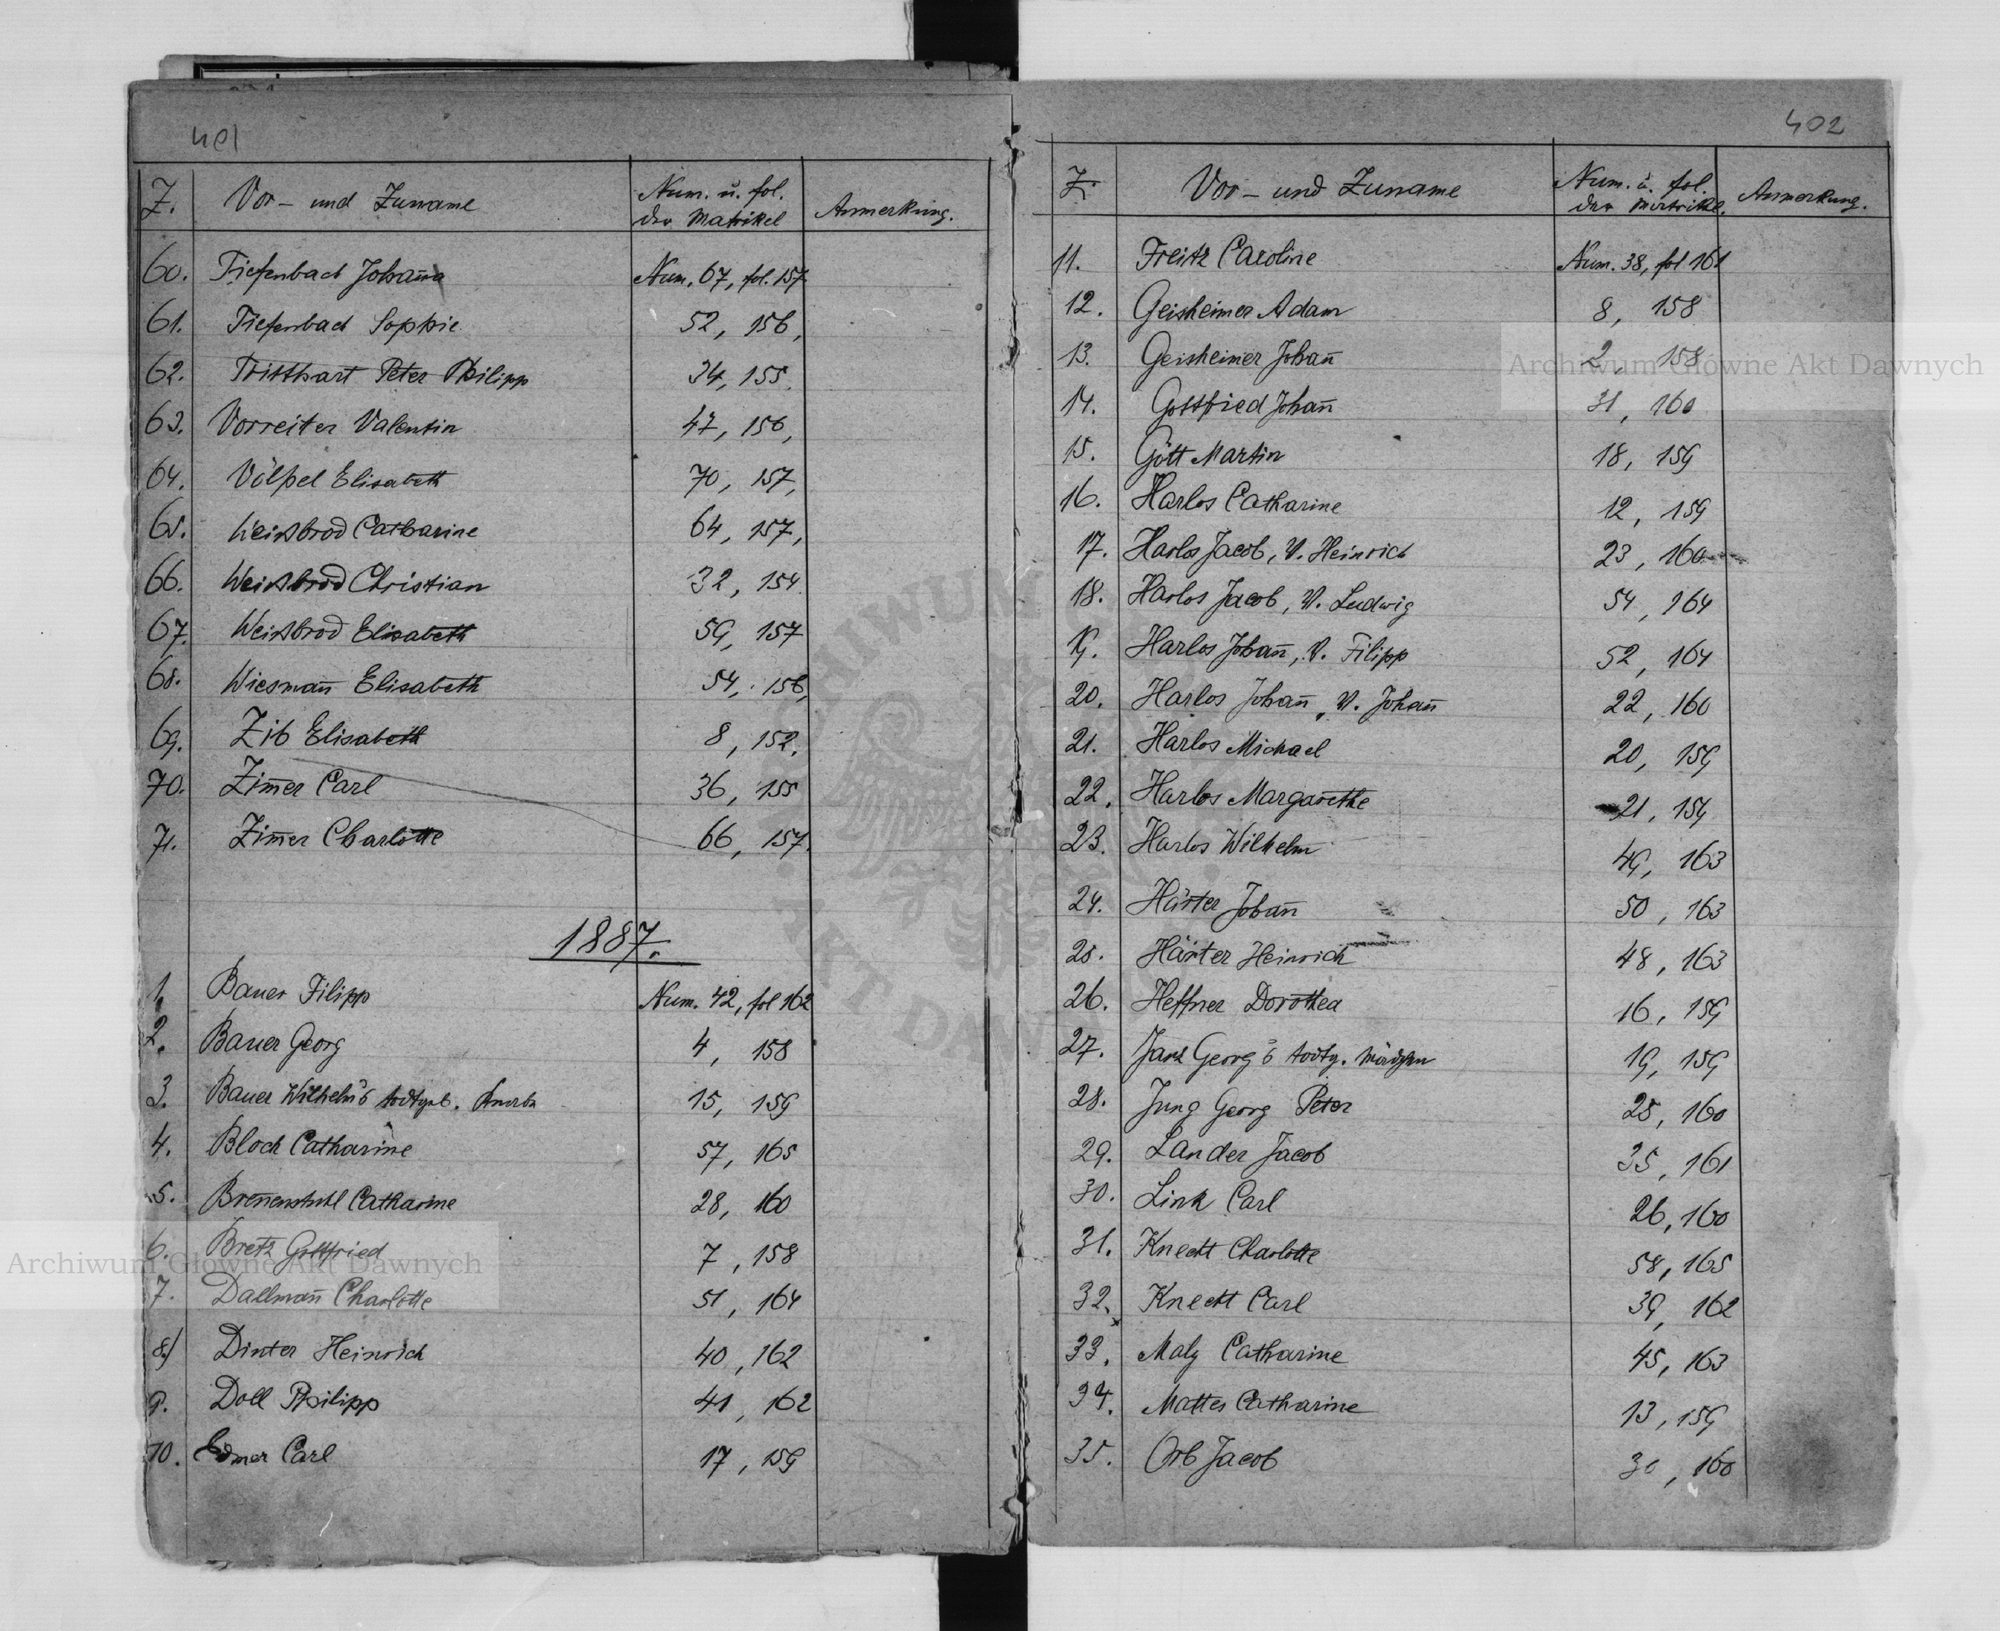 401
Z. Vor- und Zuname Num. u. fol. der Matrikel Anmerkung.
60. Tiefenbach Johan̄a Num. 67, fol. 157
61. Tiefenbach Sophie 52, 156,
62. Tritthart Peter Philipp 34, 155.
63. Vorreiter Valentin 47, 156,
64. Völpel Elisabeth 70, 157,
65. Weissbrod Catharine 64, 157,
66. Weissbrod Christian 32, 154.
67. Weissbrod Elisabeth 59, 157
68. Wiesman̄ Elisabeth 54, 156,
69. Zib Elisabeth 8, 152.
70. Zim̄er Carl 36, 155
71. Zim̄er Charlotte 66, 157.
1887.
1. Bauer Filipp Num. 42, fol 162
2. Bauer Georg 4, 158
3. Bauer Wilhelm's todtgeb. Knabe 15, 159
4. Bloch Catharine 57, 165
5. Bren̄enstuhl Catharine 28, 160
6. Bretz Gottfried 7, 158
7. Dallman̄ Charlotte 51, 164
8) Dinter Heinrich 40, 162
9. Doll Philipp 41, 162
10. Edmer Carl 17, 159
402
Z. Vor- und Zuname Num. u. fol. der Matrikel. Anmerkung.
11. Freitz Caroline Num. 38, fol 161
12. Geisheimer Adam 8, 158
13. Geisheimer Johan̄ 2, 158
14. Gottfried Johan̄ 31, 160
15. Gött Martin 18, 159
16. Harlos Catharine 12, 159
17. Harlos Jacob, V. Heinrich 23, 160
18. Harlos Jacob, V. Ludwig 54, 164
19. Harlos Johan̄, V. Filipp 52, 164
20. Harlos Johan̄, V. Johan̄ 22, 160
21. Harlos Michael 20, 159
22. Harlos Margarethe 21, 159
23. Harlos Wilhelm 49, 163
24. Härter Johan̄ 50, 163
25. Härter Heinrich 48, 163
26. Heffner Dorothea 16, 159
27. Janz Georg's todtg. Mädchen 19, 159
28. Jung Georg Peter 25, 160
29. Lander Jacob 35, 161
30. Link Carl 26, 160
31. Knecht Charlotte 58, 165
32. Knecht Carl 39, 162
33. Maly Catharine 45, 163
34. Mattes Catharine 13, 159
35. Orb Jacob 30, 160
Archiwum Główne Akt Dawnych
Archiwum Główne Akt Dawnych